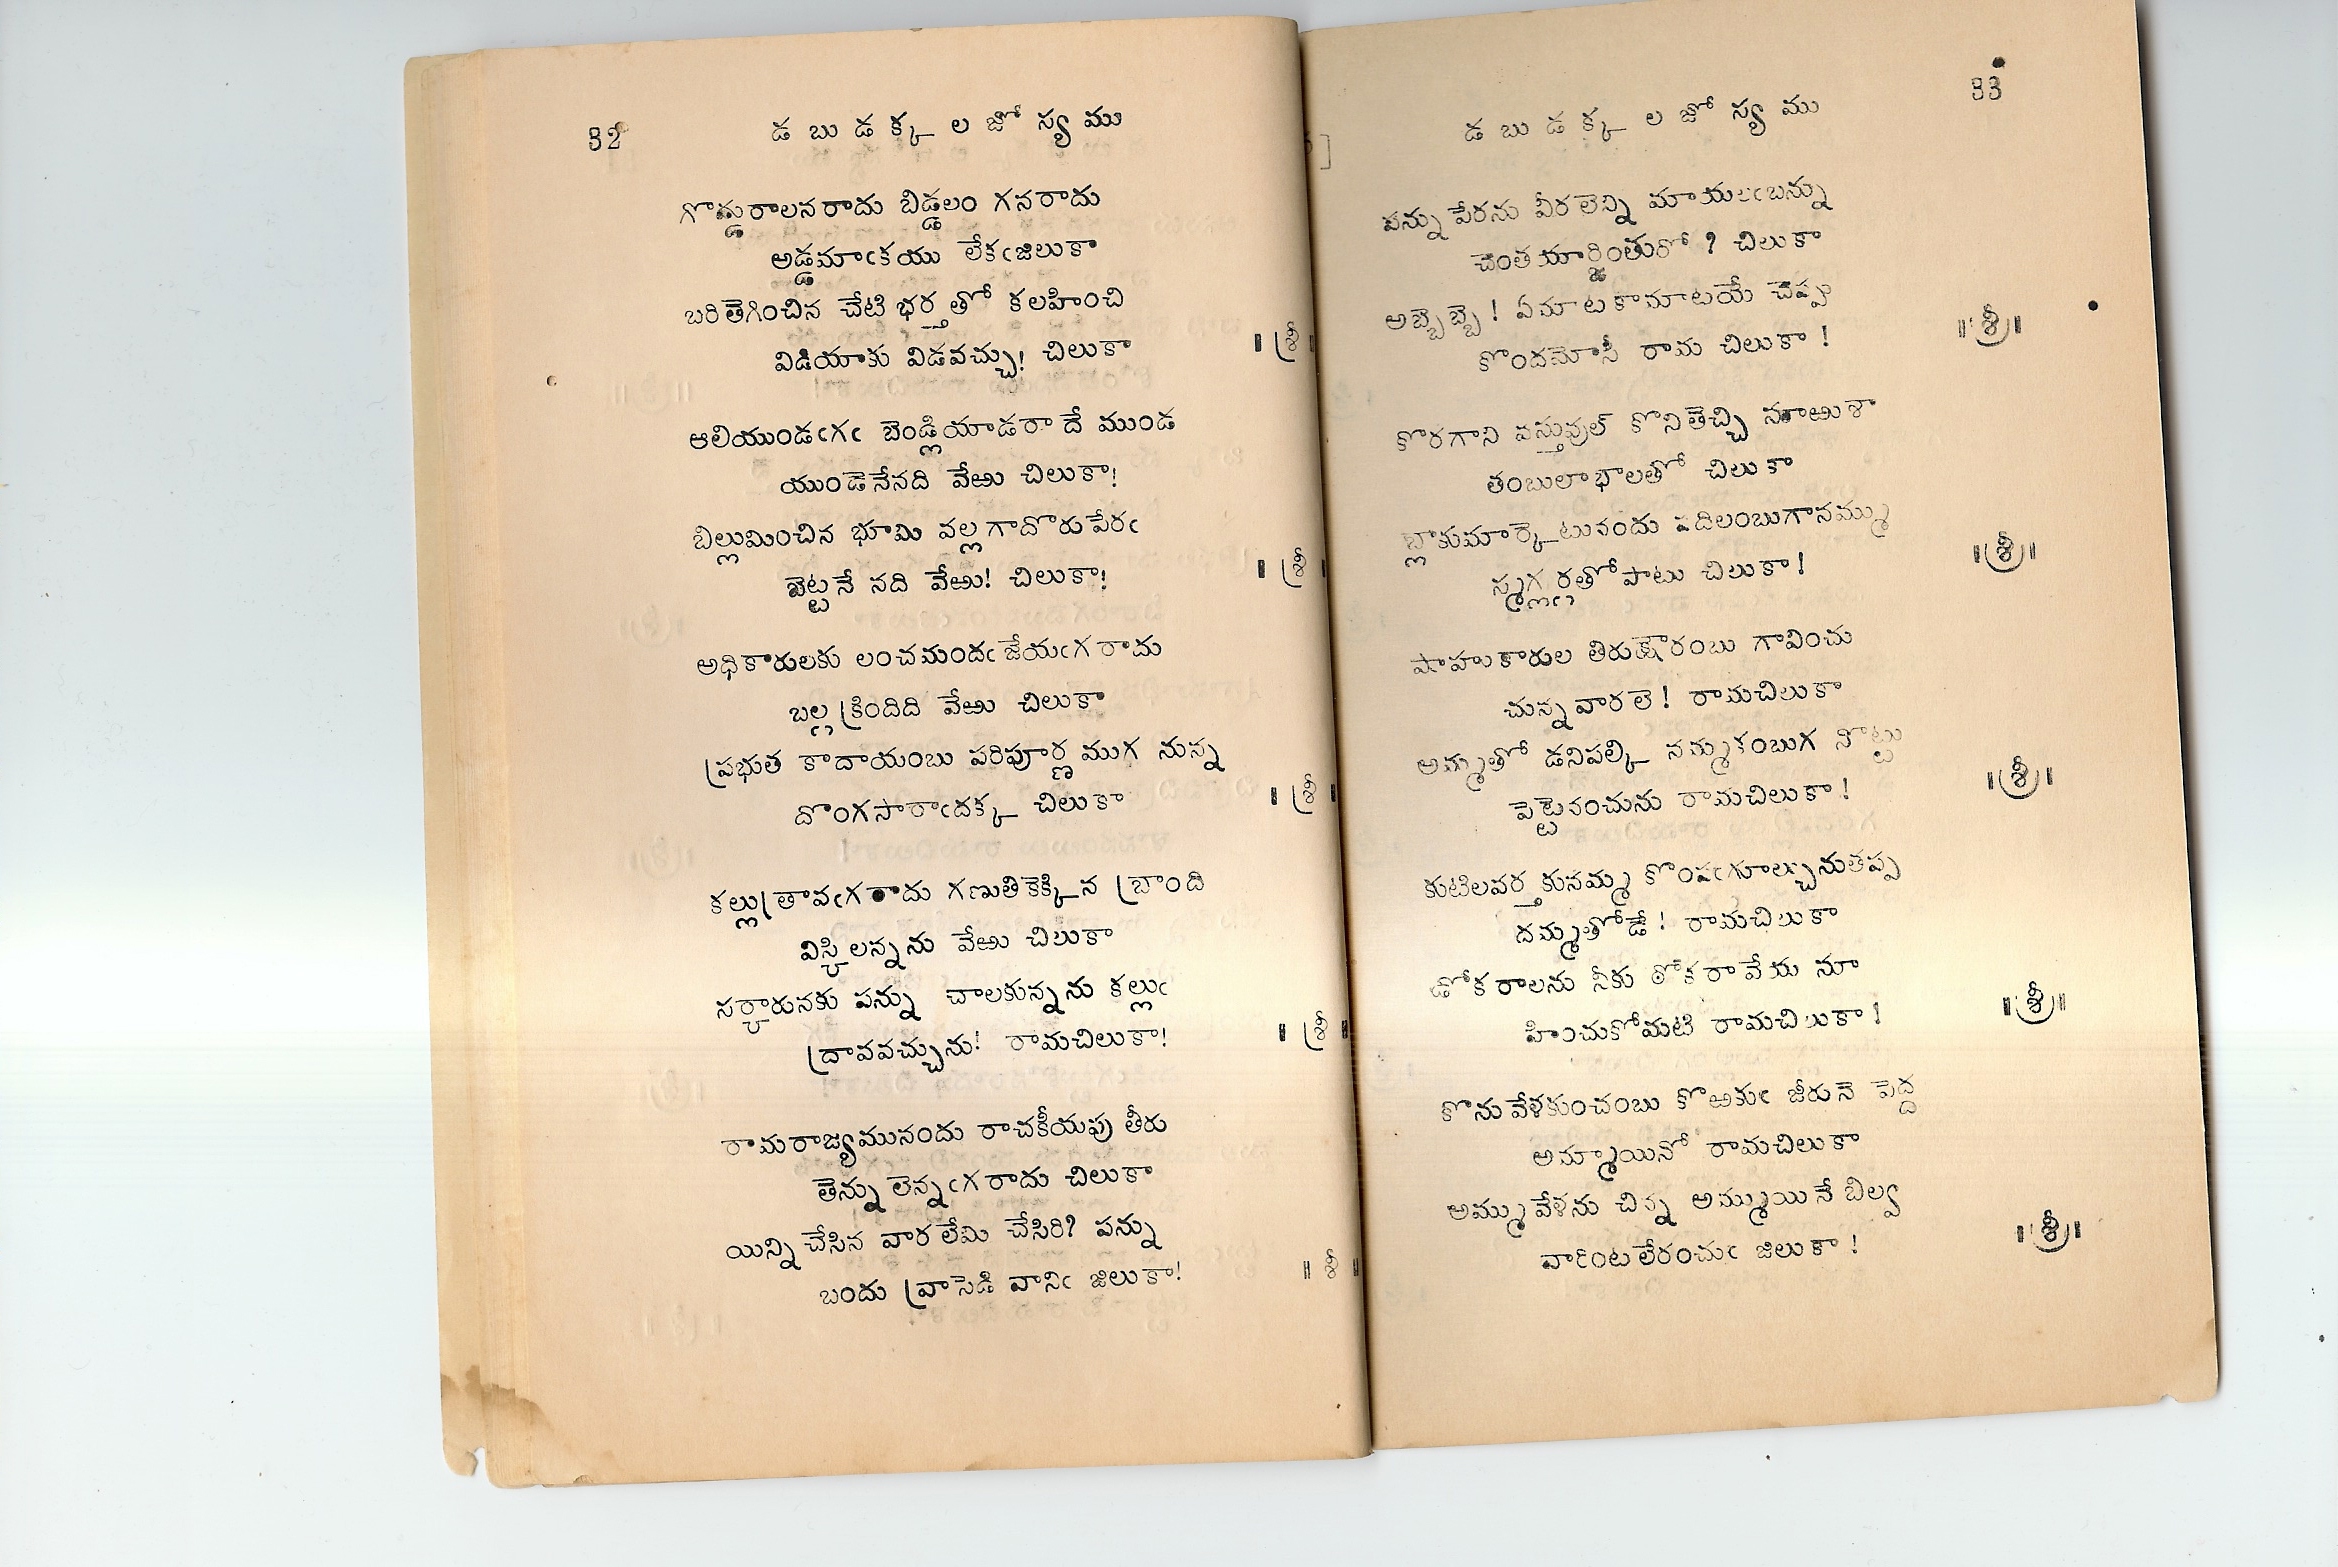 32 డబుడక్కల జోస్యము
గొడ్డురాలనరాదు బిడ్డలం గనరాదు
అడ్డమాఁకయు లేకఁజిలుకా
బరితెగించిన చేటి భర్తతో కలహించి
విడియాకు విడవచ్చు! చిలుకా ॥శ్రీ॥
ఆలియుండఁగఁ బెండ్లియాడరాదే ముండ
యుండెనేనది వేఱు చిలుకా!
బిల్లుమించిన భూమి వల్లగాదొరుపేరఁ
బెట్టనే నది వేఱు! చిలుకా! ॥శ్రీ॥
అధికారులకు లంచమందఁజేయఁగరాదు
బల్లక్రిందిది వేఱు చిలుకా
ప్రభుత కాదాయంబు పరిపూర్ణముగ నున్న
దొంగసారాఁదక్క చిలుకా ॥శ్రీ॥
కల్లుత్రావఁగరాదు గణుతికెక్కిన బ్రాంది
విస్కిలన్నను వేఱు చిలుకా
సర్కారునకు పన్ను చాలకున్నను కల్లుఁ
ద్రావవచ్చును! రామచిలుకా! ॥శ్రీ॥
రామరాజ్యమునందు రాచకీయపు తీరు
తెన్నులెన్నఁగరాదు చిలుకా
యిన్నిచేసిన వారలేమి చేసిరి? పన్ను
బందు వ్రాసెడి వానిఁ జిలుకా! ॥శ్రీ॥
డబుడక్కల జోస్యము 33
పన్నుపేరను వీరలెన్ని మాయలఁబన్ను
చెంతయార్జింతురో? చిలుకా
అబ్బెబ్బె! ఏమాటకామాటయే చెప్పు
కొందమోసీ రామ చిలుకా! ॥శ్రీ॥
కొరగాని వస్తువుల్ కొనితెచ్చి నూఱుశా
తంబులాభాలతో చిలుకా
బ్లాకుమార్కెటునందు పదిలంబుగానమ్ము
స్మగ్లర్లతోపాటు చిలుకా! ॥శ్రీ॥
షాహుకారుల తిరుక్షౌరంబు గావించు
చున్నవారలె! రామచిలుకా
అమ్మతో డనిపల్కి నమ్మకంబుగ నొట్టు
పెట్టెవంచును రామచిలుకా! ॥శ్రీ॥
కుటిలవర్తకునమ్మ కొంపఁగూల్చునుతప్ప
దమ్మతోడే! రామచిలుకా
డోకరాలను నీకు ఠోకరావేయ నూ
హించుకోమటి రామచిలుకా! ॥శ్రీ॥
కొనువేళకుంచంబు కొఱకుఁ జీరునె పెద్ద
అమ్మాయినో రామచిలుకా
అమ్మువేళను చిన్న అమ్మయినే బిల్వ
వారింటలేరంచుఁ జిలుకా! ॥శ్రీ॥